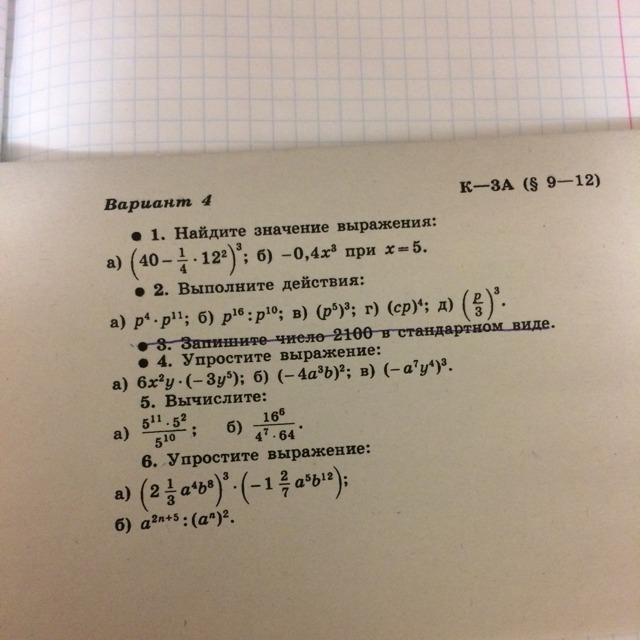 Вариант 4 К—3А (§ 9—12)
● 1. Найдите значение выражения:
а) (40 − 1/4 · 12²)³; б) −0,4x³ при x = 5.
● 2. Выполните действия:
а) p⁴ · p¹¹; б) p¹⁶ : p¹⁰; в) (p⁵)³; г) (cp)⁴; д) (p/3)³.
● 3. Запишите число 2100 в стандартном виде.
● 4. Упростите выражение:
а) 6x²y · (−3y⁵); б) (−4a³b)²; в) (−a⁷y⁴)³.
5. Вычислите:
а) (5¹¹ · 5²)/5¹⁰; б) 16⁶/(4⁷ · 64).
6. Упростите выражение:
а) (2 1/3 a⁴b⁸)³ · (−1 2/7 a⁵b¹²);
б) a²ⁿ⁺⁵ : (aⁿ)².